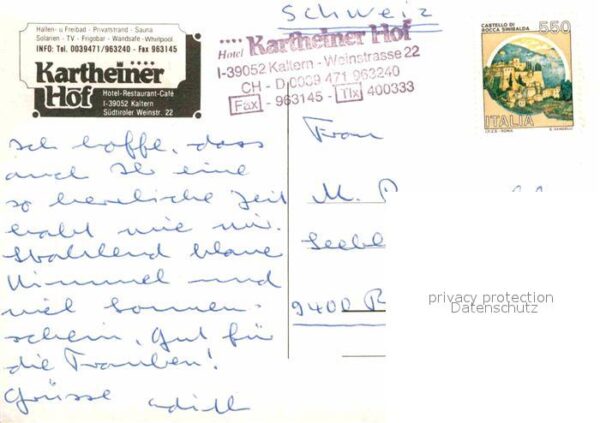 Hallen- u Freibad - Privatstrand - Sauna
Solarien - TV - Frigobar - Wandsafe - Whirlpool
INFO: Tel. 0039471/963240 - Fax 963145
Kartheiner
Hof
Hotel-Restaurant-Café
I-39052 Kaltern
Südtiroler Weinstr. 22
Schweiz
Hotel Kartheiner Hof
I-39052 Kaltern - Weinstrasse 22
CH - D 0039 471 963240
Fax - 963145 - Tlx 400333
CASTELLO DI
ROCCA SINIBALDA
550
ITALIA
I.P.Z.S. - ROMA
Ich hoffe, dass
auch Ihr eine
so herrliche Zeit
habt wie wir.
Strahlend blauer
Himmel und
viel Sonnen-
schein, gut für
die Trauben!
Grüsse
Frau
M.
9400
privacy protection
Datenschutz